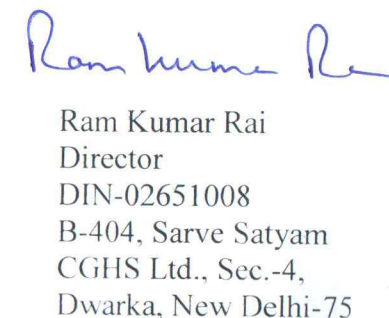 Ram Kumar Ra
Ram Kumar Rai
Director
DIN-02651008
B-404, Sarve Satyam
CGHS Ltd., Sec.-4,
Dwarka, New Delhi-75